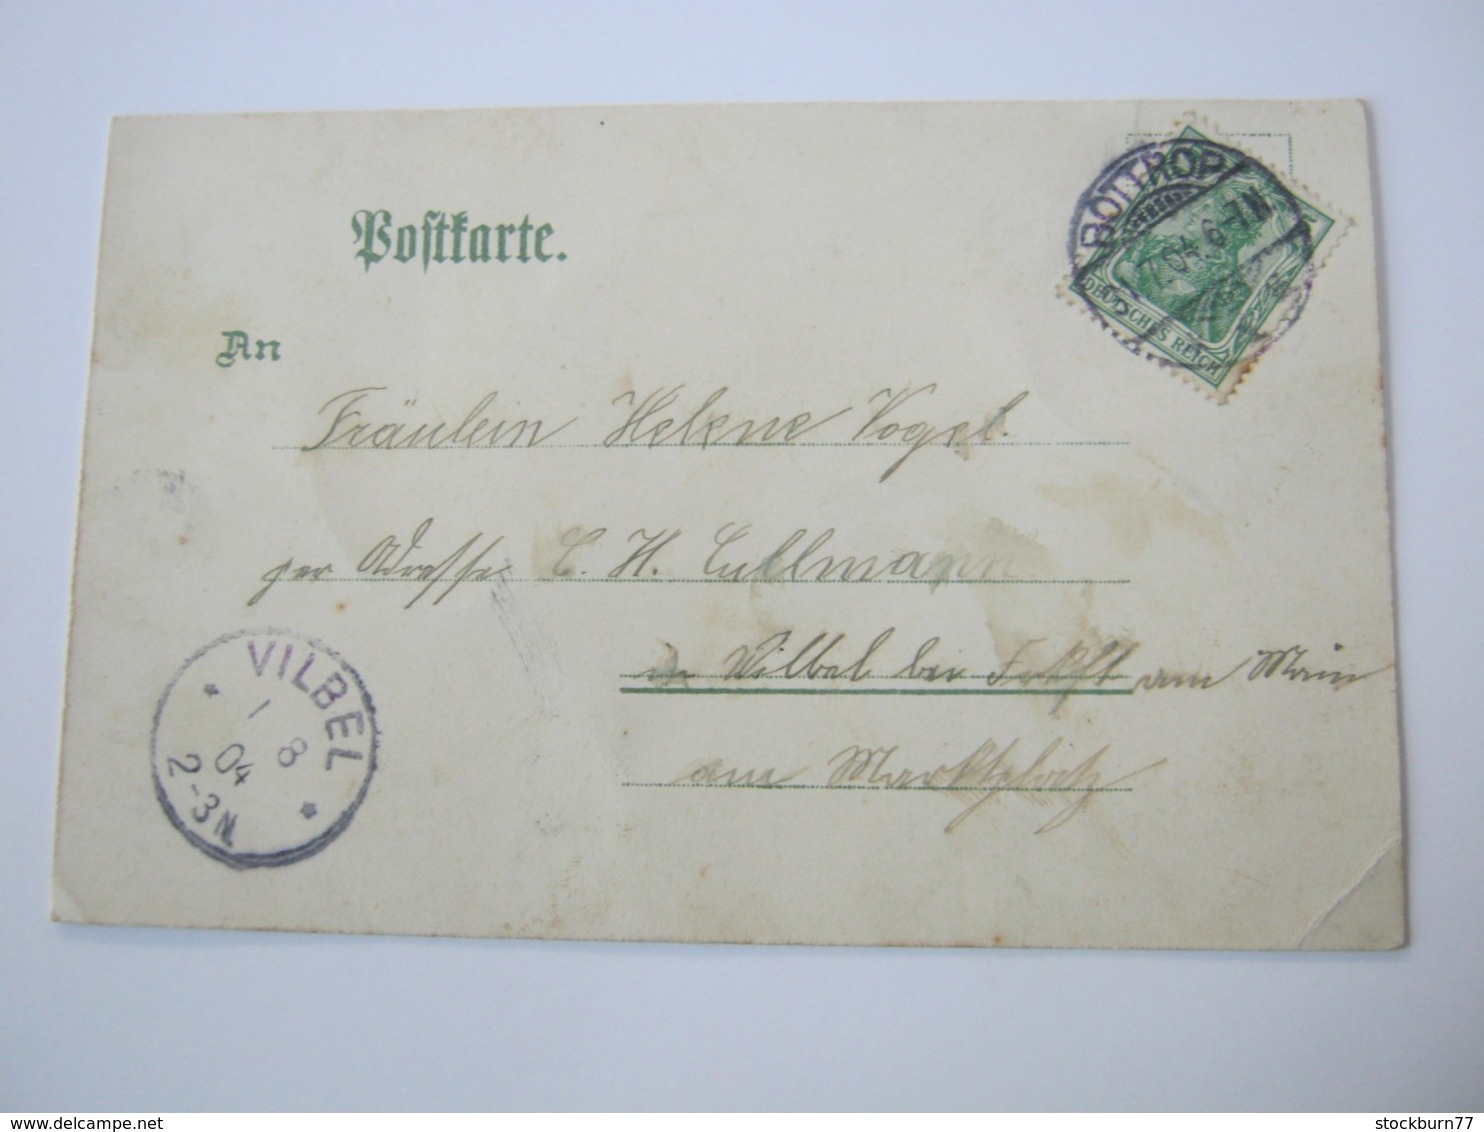 Postkarte.
BOTTROP
7.04.6-7N
DEUTSCHES REICH
An
Fräulein Helene Vogel.
per Adresse C. H. Cullmann
in Vilbel bei Frkft am Main
am Marktplatz
VILBEL
1 8
04
2-3N
stockburn77